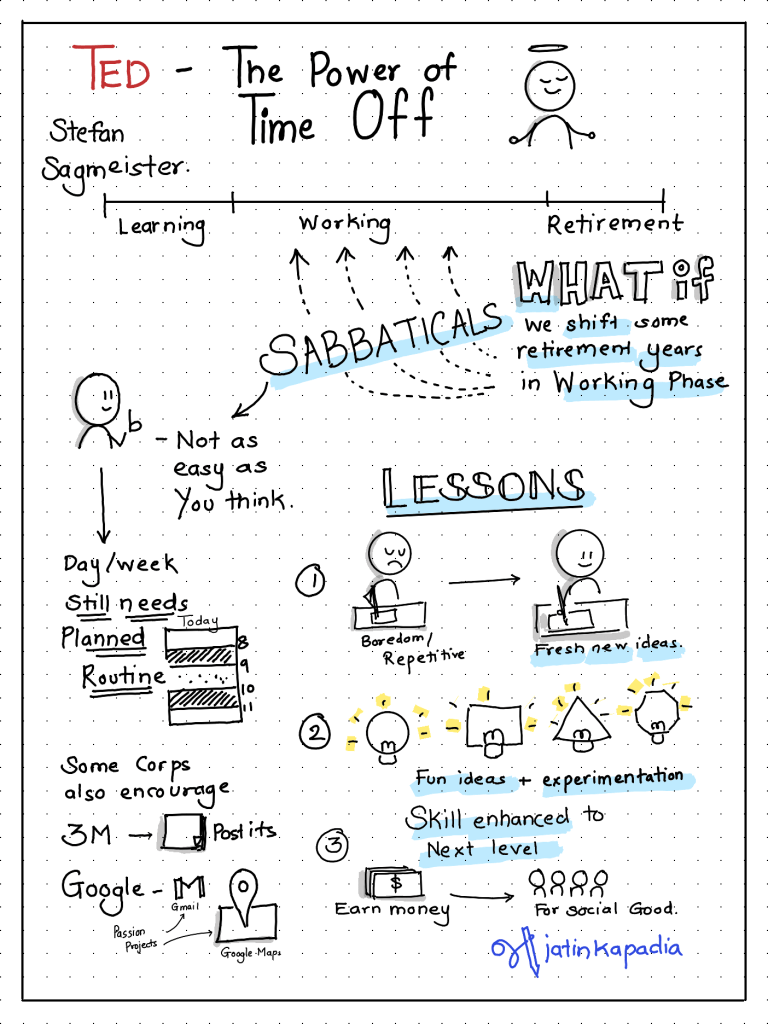 TED - The Power of
Time Off
Stefan
Sagmeister.
Learning
Working
Retirement
WHAT if
we shift some
retirement years
in Working Phase
SABBATICALS
- Not as
easy as
You think.
Day/week
Still needs
Planned
Routine
Today
8
9
10
11
Some Corps
also encourage
3M → Post its
Google - M
Gmail
Passion
Projects
Google Maps
LESSONS
1
Boredom/
Repetitive
Fresh new ideas.
2
Fun ideas + experimentation
3
Skill enhanced to
Next level
$
Earn money
For Social Good.
jatinkapadia